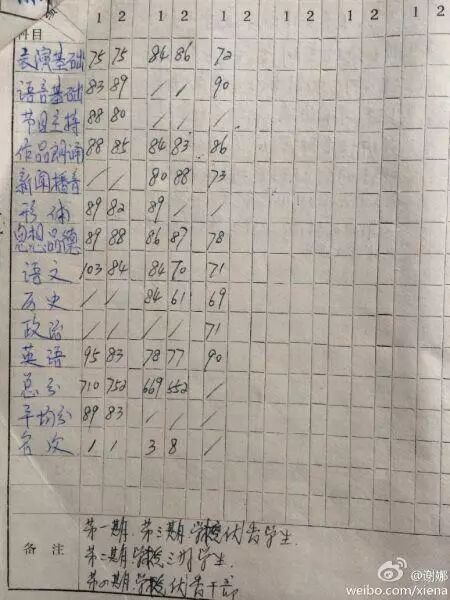 1 2 1 2 1 2 1 2 1 2 1 2
科目
表演基础 75 75 84 86 72
语言基础 83 89 / / 90
节目主持 88 80 / / /
作品朗诵 88 85 84 83 86
新闻播音 / / 80 88 73
形体 89 82 89 / /
思想品德 89 88 86 87 78
语文 103 84 84 70 71
历史 / / 84 61 69
政治 / / / / 71
英语 95 83 78 77 90
总分 710 752 669 552 /
平均分 89 83 / / /
名次 1 1 3 8 /
第一期.第三期.学校优秀学生.
备注 第二期.学校三好学生.
第四期.学校优秀干部
@谢娜
weibo.com/xiena